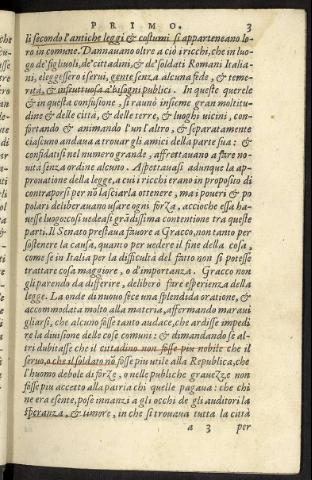 PRIMO. 3
li secondo l'antiche leggi & costumi si apparteneano lo-
ro in comune. Dannauano oltre a ciò i ricchi, che in luo-
go de' figliuoli, de' cittadini, & de' soldati Romani Italia-
ni, eleggessero i serui, gente senza alcuna fede, & teme-
rità, & infruttuosa a' bisogni publici. In queste querele
& in questa confusione, si raunò insieme gran moltitu-
dine & delle città, & delle terre, & luoghi vicini, con-
fortando & animando l'un l'altro, & separatamente
ciascuno andaua a trouar gli amici della parte sua: &
confidatisi nel numero grande, affrettauano a fare no-
uità senza ordine alcuno. Aspettauasi adunque la ap-
prouatione della legge, a cui i ricchi erano in proposito di
contraporsi per nõ lasciarla ottenere, ma i poueri & po
polari deliberauano usare ogni forza, acciochè essa ha-
uesse luogo: così uedeasi grãdissima contentione tra queste
parti. Il Senato prestaua fauore a Gracco, non tanto per
sostenere la causa, quanto per uedere il fine della cosa,
come se in Italia per la difficultà del fatto non si potesse
trattare cosa maggiore, o d'importanza. Gracco non
gli parendo da differire, deliberò fare esperienza della
legge. La onde di nuouo fece una splendida oratione, &
accommodata molto alla materia, affermando maraui
gliarsi, che alcuno fosse tanto audace, che ardisse impedi
re la diuisione delle cose comuni: & dimandando se al-
tri dubitasse che il cittadino non fosse piu nobile che il
seruo, o che il soldato nõ fosse piu utile alla Republica, che
l'huomo debole di forze, o nelle publiche grauezze non
fosse piu accetto alla patria chi quelle pagaua: che chi
ne era esente, pose innanzi a gli occhi de gli auditori la
speranza, & timore, in che si trouaua tutta la città
a 3 per